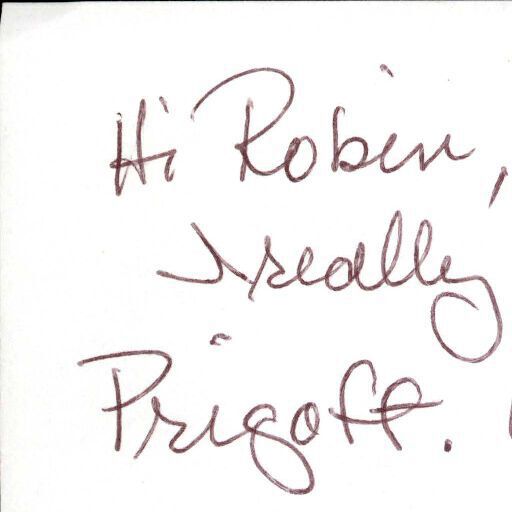 Hi Robin,
I really
Prigoff.